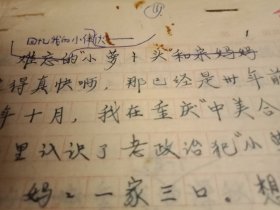 (19)
回忆我的小伙
难忘的"小萝卜头"和宋妈妈
得真快啊，那已经是卅年前
年十月，我在重庆"中美合
里认识了老政治犯"小
妈：一家三口。想